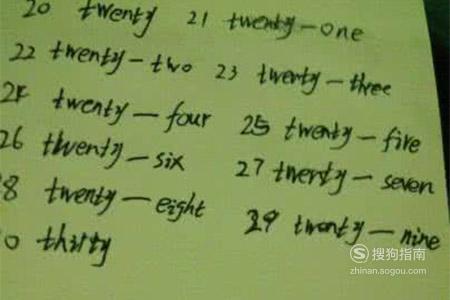 20 twenty 21 twenty-one
22 twenty-two 23 twenty-three
24 twenty-four 25 twenty-five
26 twenty-six 27 twenty-seven
8 twenty-eight 29 twenty-nine
0 thirty
搜狗指南
zhinan.sogou.com